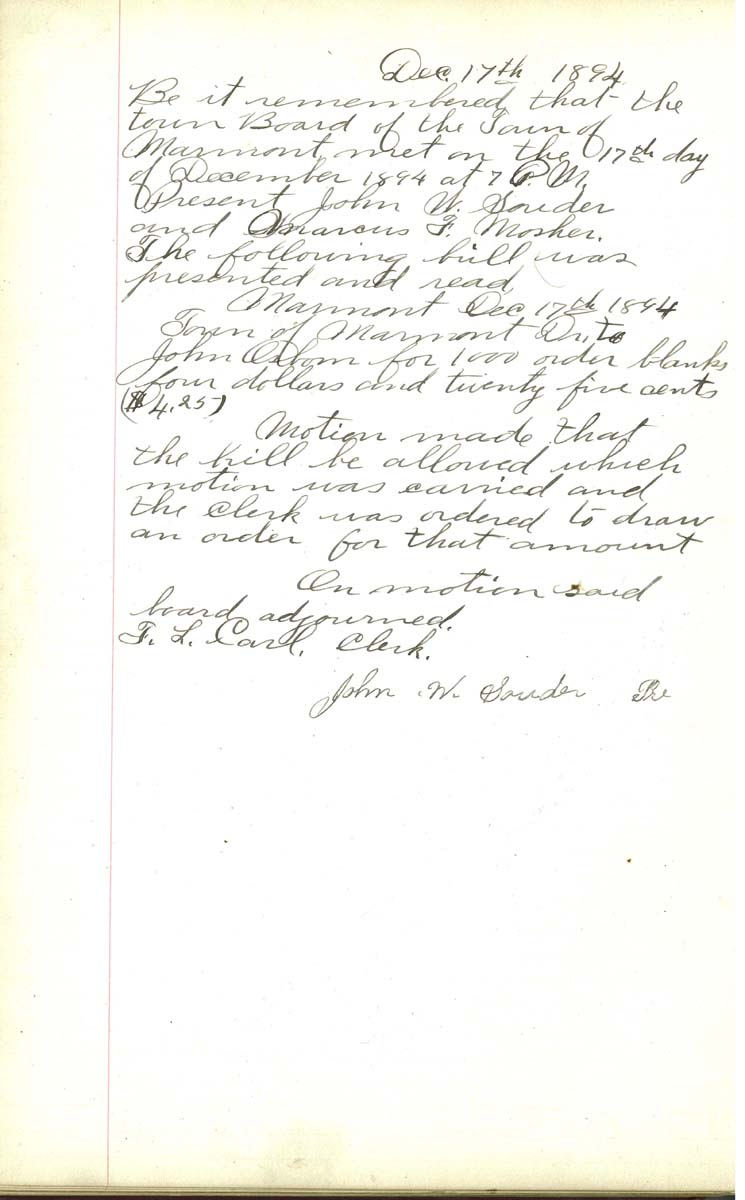 Dec. 17th 1894
Be it remembered that the
town Board of the Town of
Marmont, met on the 17th day
of December 1894 at 7 P.M.
Present John W. Souder
and Marcus F. Mosher.
The following bill was
presented and read
Marmont Dec 17th 1894
Town of Marmont Dr. to
John Osborn for 1000 order blanks
four dollars and twenty five cents
($4.25)
Motion made that
the bill be allowed which
motion was carried and
the Clerk was ordered to draw
an order for that amount
On motion said
board adjourned.
F. L. Carl, Clerk.
John W. Souder Pre